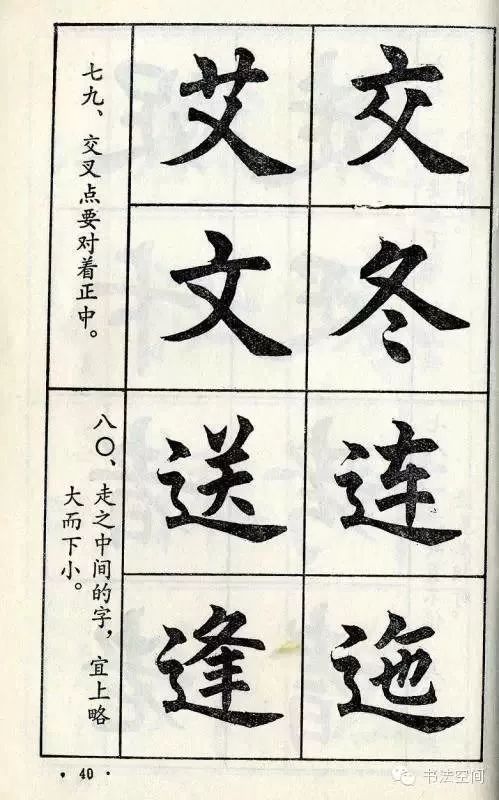 交
冬
连
迤
艾
文
送
逢
七九、交叉点要对着正中。
八〇、走之中间的字，宜上略
大而下小。
· 40 ·
书法空间